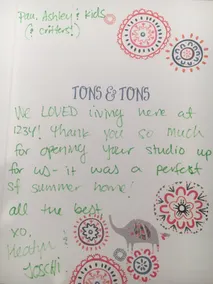 Dan, Ashley & Kids
(& critters!)
TONS & TONS
We LOVED living here at
1234! Thank you so much
for opening your studio up
for us - it was a perfect
SF summer home!
all the best
xo,
&
JOSCHI